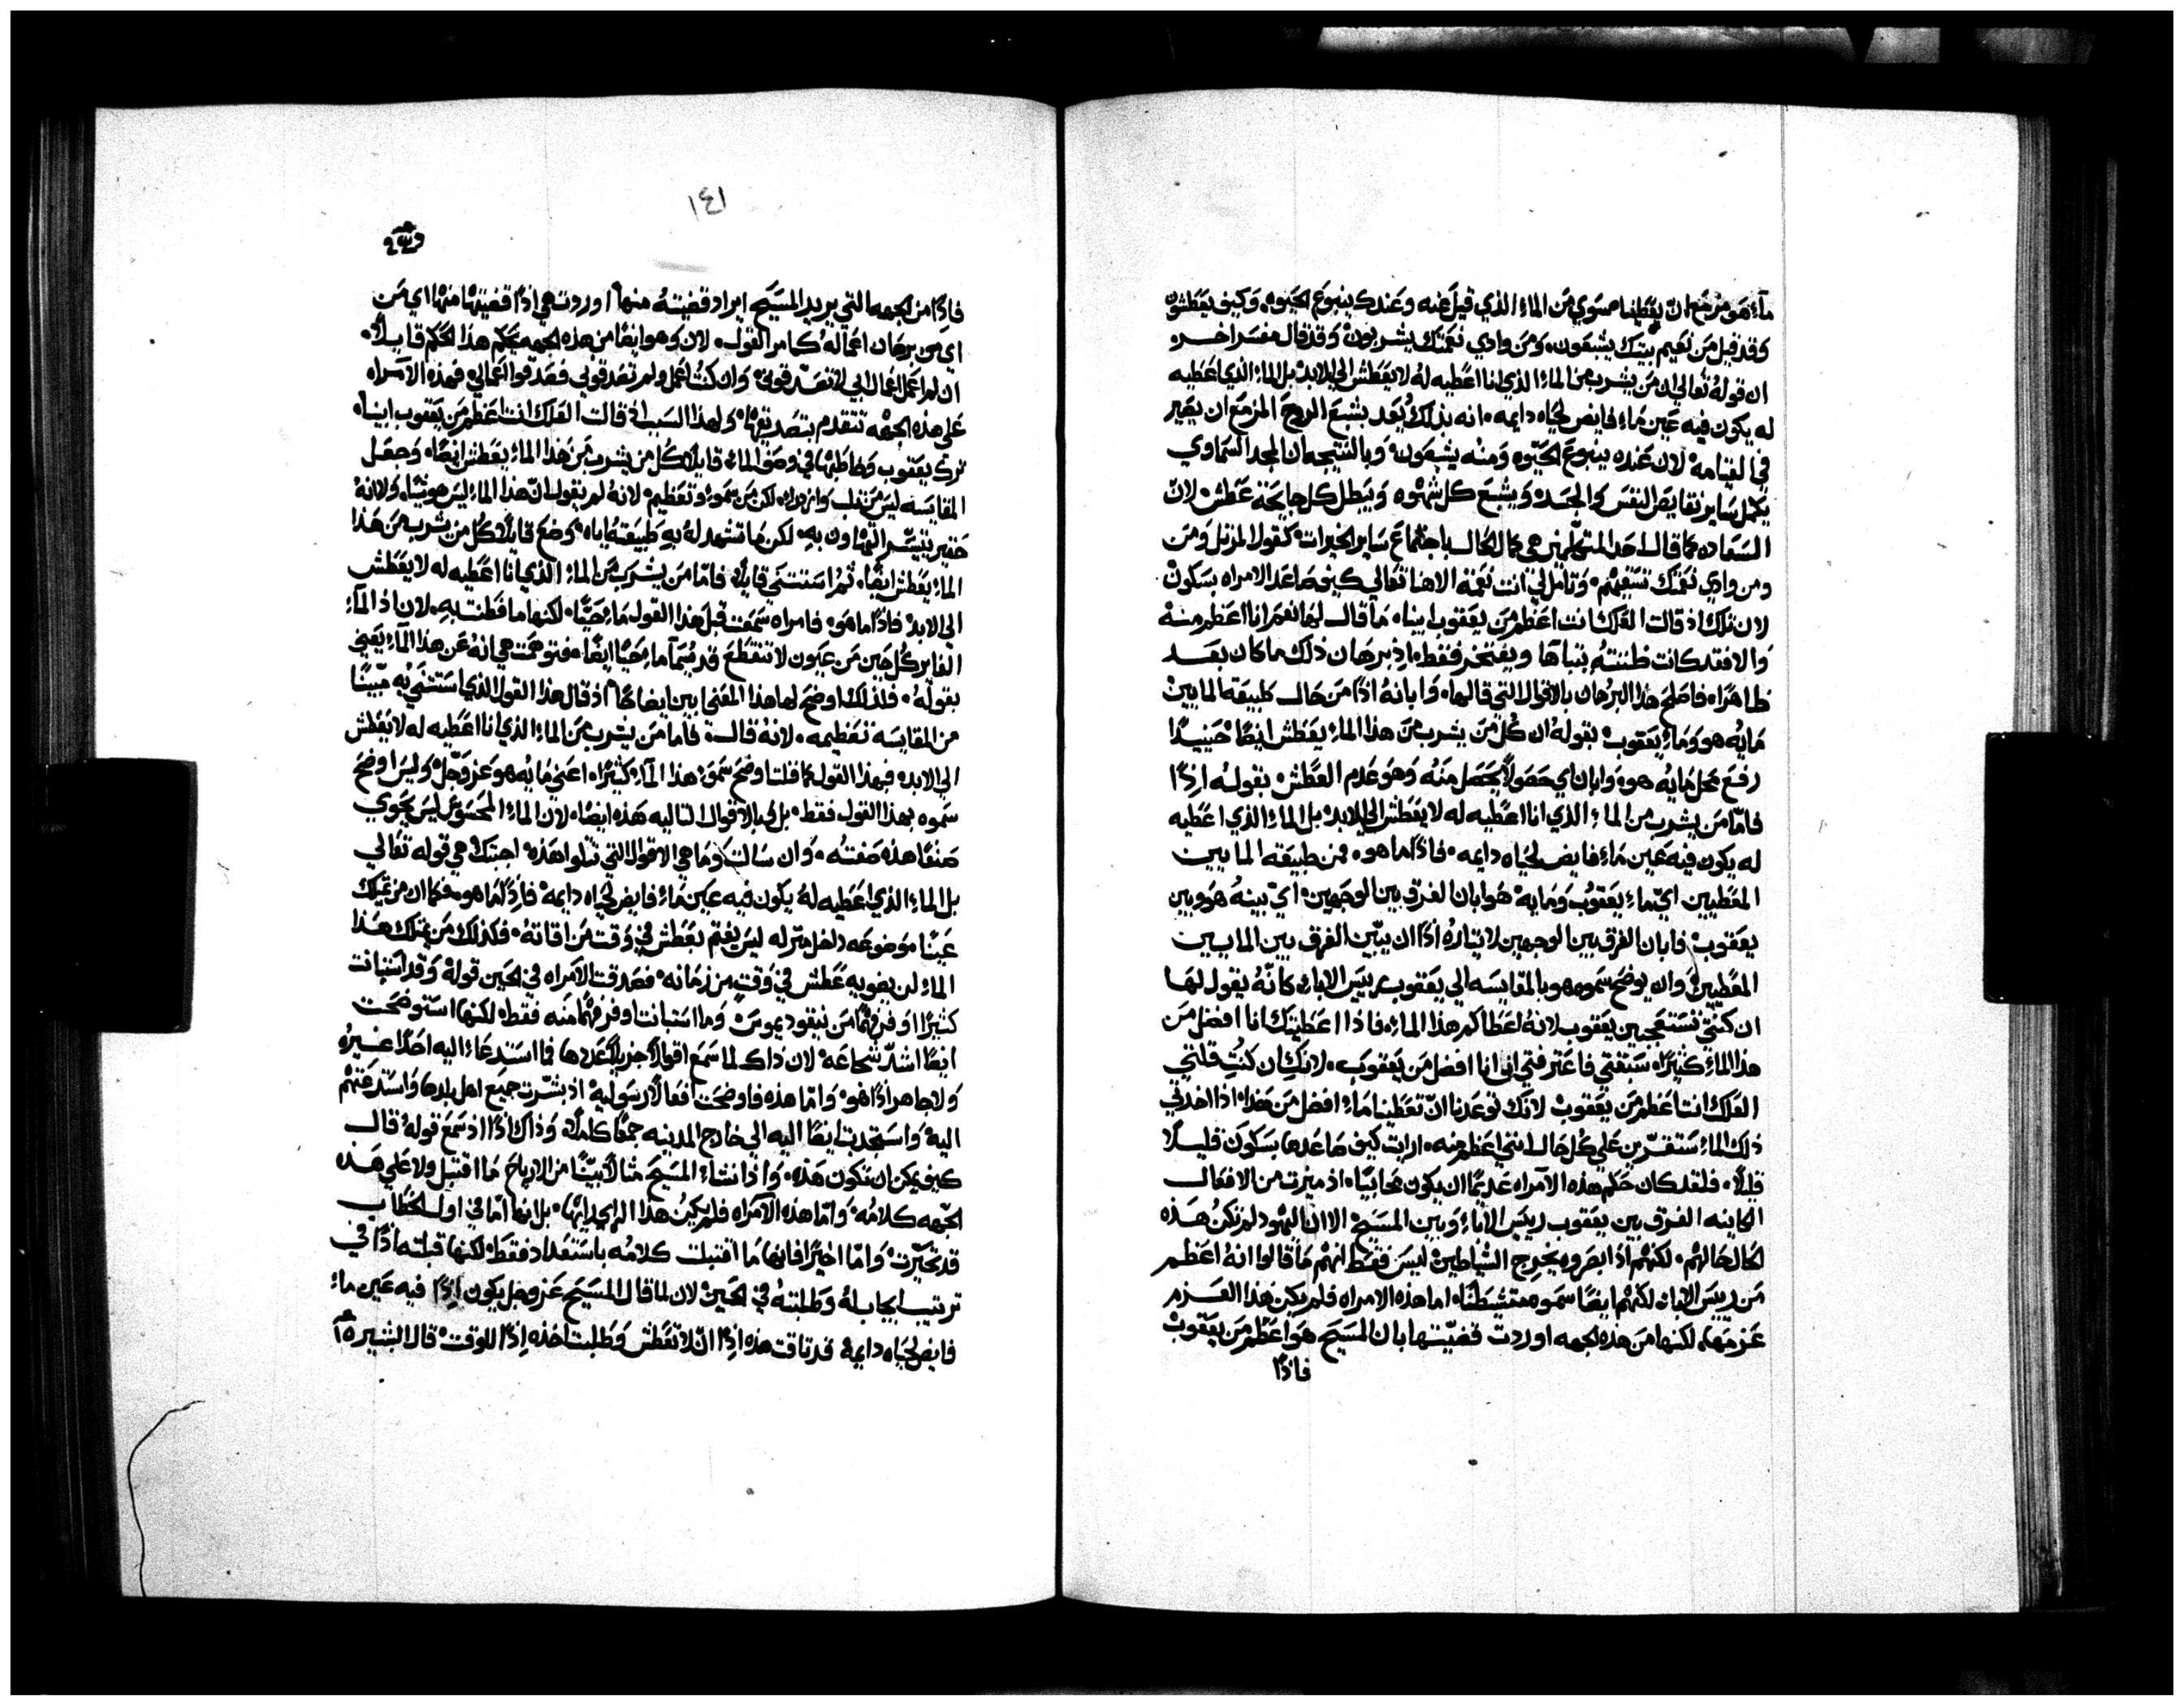 ماء هو مزمع ان يعطينا سوي من الماء الذي قيل عنه وعندك ينبوع الحيوه. وكيف يعطشون
وقد قيل من نعيم بيتك يشبعون. ومن وادي نعمتك يشربون وقد قال مفسر اخر.
ان قوله تعالي ان من يشرب من الماء الذي انا اعطيه له لا يعطش الي الابد بل الماء الذي اعطيه
له يكون فيه عين ماء فايض لحياه دايمه. انه بذلك يعد بشبع الروح المزمع ان يصير
في القيامه لان عنده ينبوع الحيوه ومنه يشبعون. وبالنتيجه ان المجد السماوي
يكمل ساير نقايص النفس والجسد. ويشبع كل شهوه ويبطل كل جايحة عطش. لان
السعاده كما قال احد المتكلمين هي كمال الحال باجتماع ساير الخيرات كقول المرتل ومن
ومن وادي نعمتك تسقيهم. وتامل لي انت نعمه الاهنا تعالي كيف صاعد الامراه بسكون
لان تلك اذ قالت العلك انت اعظم من يعقوب ابينا. ما قال لها نعم انا اعظم منه
والا فقد كانت ظنته بتباها ويفتخر فقط. اذ برهان ذلك ما كان بعد
ظاهرا. فاصلح هذا البرهان بالاقوال التي قالها. وابانه اذا من حال طبيعة المايين
مايه هو وماء يعقوب بقوله ان كل من يشرب من هذا الماء يعطش ايضا حينيذا
رفع محل مايه هو. وابان اي حصولا يحصل منه وهو عدم العطش بقوله اذا
فاما من يشرب من الماء الذي انا اعطيه له لا يعطش الي الابد بل الماء الذي اعطيه
له يكون فيه عين ماء فايض لحياه دايمه. فاذا ما هو. فمن طبيعة المايين
المعطيين اي ماء يعقوب ومايه هو ابان الفرق بين الوجهين اي بينه هو وبين
يعقوب فابان الفرق بين الوجهين لايثاره اذا ان يبين الفرق بين المايين
المعطيين وان يوضح سموه هو بالمقايسه الي يعقوب رييس الاباء. كانه يقول لها
ان كنتي تستعجبين يعقوب لانه اعطاكم هذا الماء. فاذا اعطيتك انا افضل من
هذا الماء كثيرا. سبقتي فاعترفتي اني انا افضل من يعقوب. لانك ان كنت قلتي
العلك انت اعظم من يعقوب لانك توعدنا ان تعطينا ماء افضل من هذا. اذا اخذتي
ذلك الماء ستقرين علي كل حال انني اعظم منه. ارايت كيف صاعدها بسكون قليلا
قليلا. فلقد كان حكم هذه الامراه عديما ان يكون محابيا. اذ ميزت من الافعال
الكاينه الفرق بين يعقوب رييس الاباء وبين المسيح الا ان اليهود لم تكن هذه
الحال حالهم. لكنهم اذ ابصروه يخرج الشياطين ليس فقط انهم ما قالوا انه اعظم
من رييس الاباء لكنهم ايضا سموه متشيطنا. اما هذه الامراه فلم يكن هذا العزم
عزمها. لكنها من هذه الجهه اوردت قضيتها بان المسيح هو اعظم من يعقوب
فاذا
١٤١
فاذا من الجهه التي يريد المسيح ايراد قضيته منها اوردت هي اذا قضيتها منها اي من
اي من برهان اعماله كما مر القول. لان وهو ايضا من هذه الجهه يحكم هذا الحكم قايلا.
ان لم اعمل اعمال ابي لا تصدقوني. وان كنت اعمل ولم تصدقوني فصدقوا اعمالي فهذه الامراه
علي هذه الجهه تتقدم بتصديقها. ولهذا السبب اذ قالت العلك انت اعظم من يعقوب ابينا.
ترك يعقوب وخاطبها في وصف الماء. قايلا كل من يشرب من هذا الماء يعطش ايضا. وجعل
المقايسه ليس من ثلب وازدراء لكن من سمو وتعظيم. لانه لم يقول ان هذا الماء ليس هو شيا. ولا انه
حقير يتيسر التهاون به. لكن ما تشهد له به طبيعته اياه. وضع قايلا كل من يشرب من هذا
الماء يعطش ايضا. ثم استثني قايلا. فاما من يشرب من الماء الذي انا اعطيه له لا يعطش
الي الابد. فاذا ما هو. فامراه سمعت قبل هذا القول ماء حيا. لكنها ما فطنت به. لان اذ الماء
الفاير كل حين من عيون لا تنقطع قد يسما ماء حيا ايضا. فتوهمت هي انه عن هذا الماء يعني
بقوله. فلذلك اوضح لها هذا المعني ابين ايضاحا اذ قال هذا القول الذي استثني به مبينا
من المقايسه تعظيمه. لانه قال. فاما من يشرب من الماء الذي انا اعطيه له لا يعطش
الي الابد. فهذا القول كما قلت اوضح سمو هذا الماء كثيرا. اعني مايه هو عز وجل. وليس اوضح
سموه بهذا القول فقط. بل وبالاقوال التاليه هذه ايضا. لان الماء المحسوس ليس يحوي
صنفا هذه صفته. وان سالت وما هي الاقوال التي تتلوا هذه. اجبتك هي قوله تعالي
بل الماء الذي اعطيه له يكون فيه عين ماء فايض لحياه دايمه. فاذا ما هو. فكما ان من يملك
عينا موضوعه داخل منزله ليس يغتم بعطش في وقت من اوقاته. فكذلك من يمتلك هذا
الماء لن يضويه عطش في وقت من زمانه. فصدقت الامراه في الحين قوله. وقد استبانت
كثيرا اوفر فهما من نيقوديموس. وما استبانت اوفر فهما منه فقط. لكنها استوضحت
ايضا اشد شجاعه. لان ذاك لما سمع اقوالا جزيلا عددها فما استدعاء اليه احدا غيره
ولا جاهر اذا هو. واما هذه فاوضحت افعالا رسوليه اذ بشرت جميع اهل بلدها واستدعتهم
اليه. واستجذبت ايضا اليه الي خارج المدينه جمعا كاملا. وذاك اذا اذ سمع قوله قال
كيف يمكن ان تكون هذه. واذ انشاء المسيح مثالا بينا من الارياح ما اقتبل ولا علي هذه
الجهه كلامه. واما هذه الامراه فلم يكن هذا الراي رايها. بل انها اما في اول الخطاب
قد تحيرت. واما اخيرا فانها ما اقتبلت كلامه باستعداد فقط. لكنها قبلته اذا في
ترتيب ايجاب له وطلبته في الحين. لان لما قال المسيح عز وجل يكون اذا فيه عين ماء
فايض لحياه دايمه قد تاقت هذه اذا ان لا تعطش وطلبت اخذه اذا للوقت. قال البشير ١٥